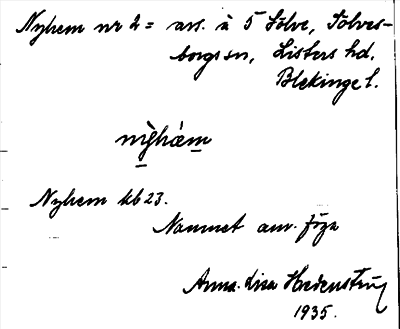 Nyhem nr 2 = avs. å 5 Sölve, Sölves-
borgs sn, Listers hd,
Blekinge l.
nỳhæm
Nyhem kb 23.
Namnet anv. föga
Anna-Lisa Hedenstrug
1935.